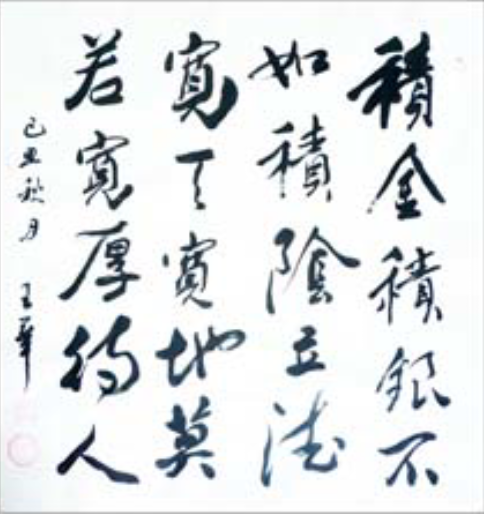 積金積銀不
如積陰立德
寬天寬地莫
若寬厚待人
己丑秋月 王華